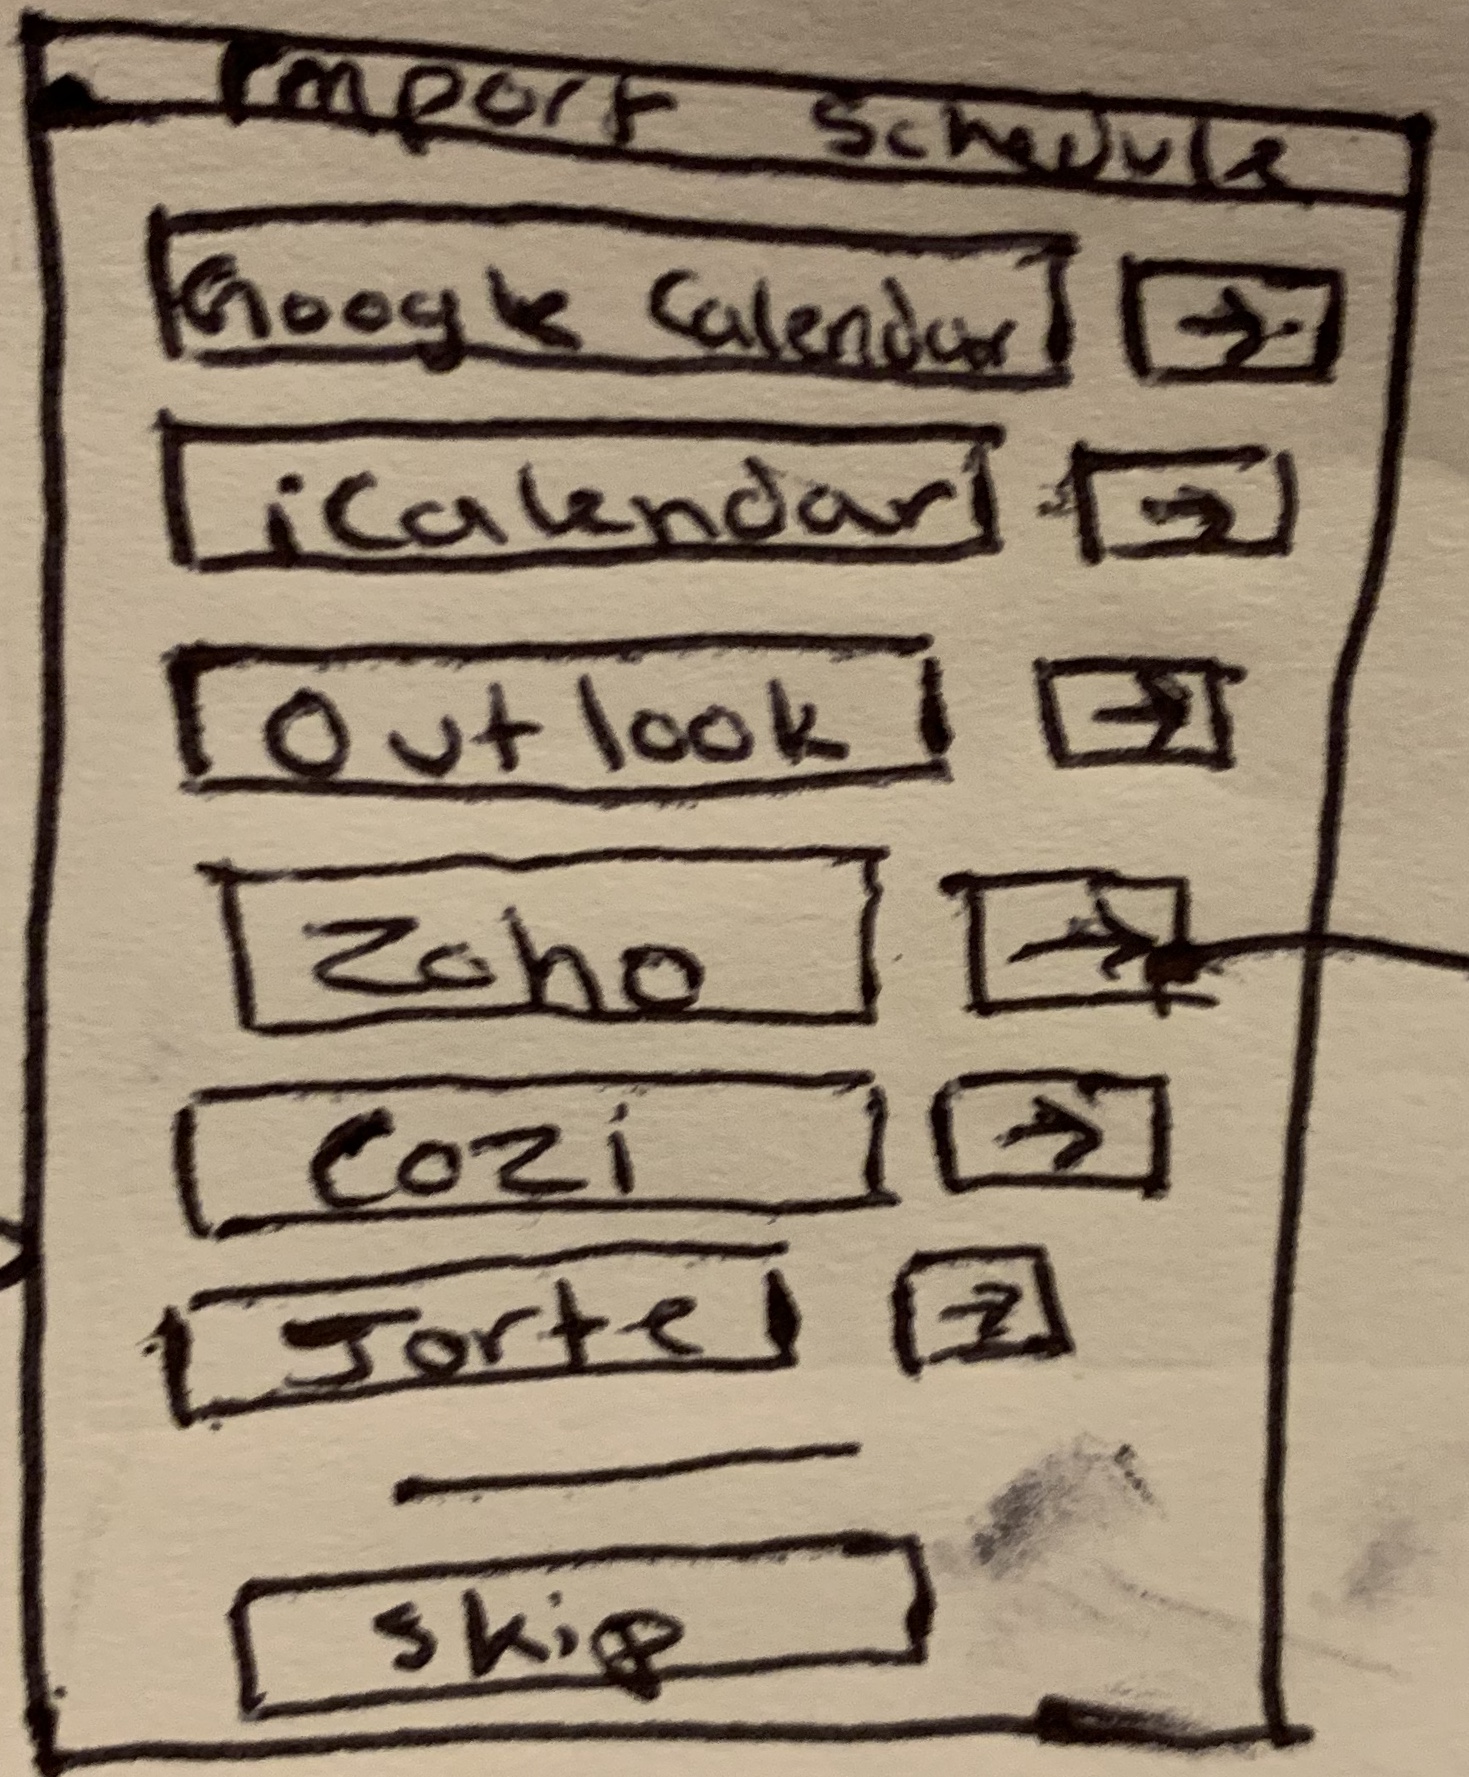 Import Schedule
Google Calendar →
iCalendar →
Outlook →
Zoho →
Cozi →
Jorte →
Skip